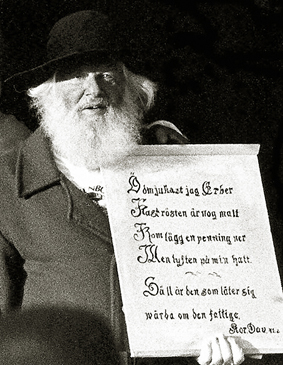 Ödmjukast jag Er ber
Fast rösten är nog matt
Kom lägg en penning ner
Men lyften på min hatt.
Säll är den som låter sig
wårda om den fattige.
Dav.